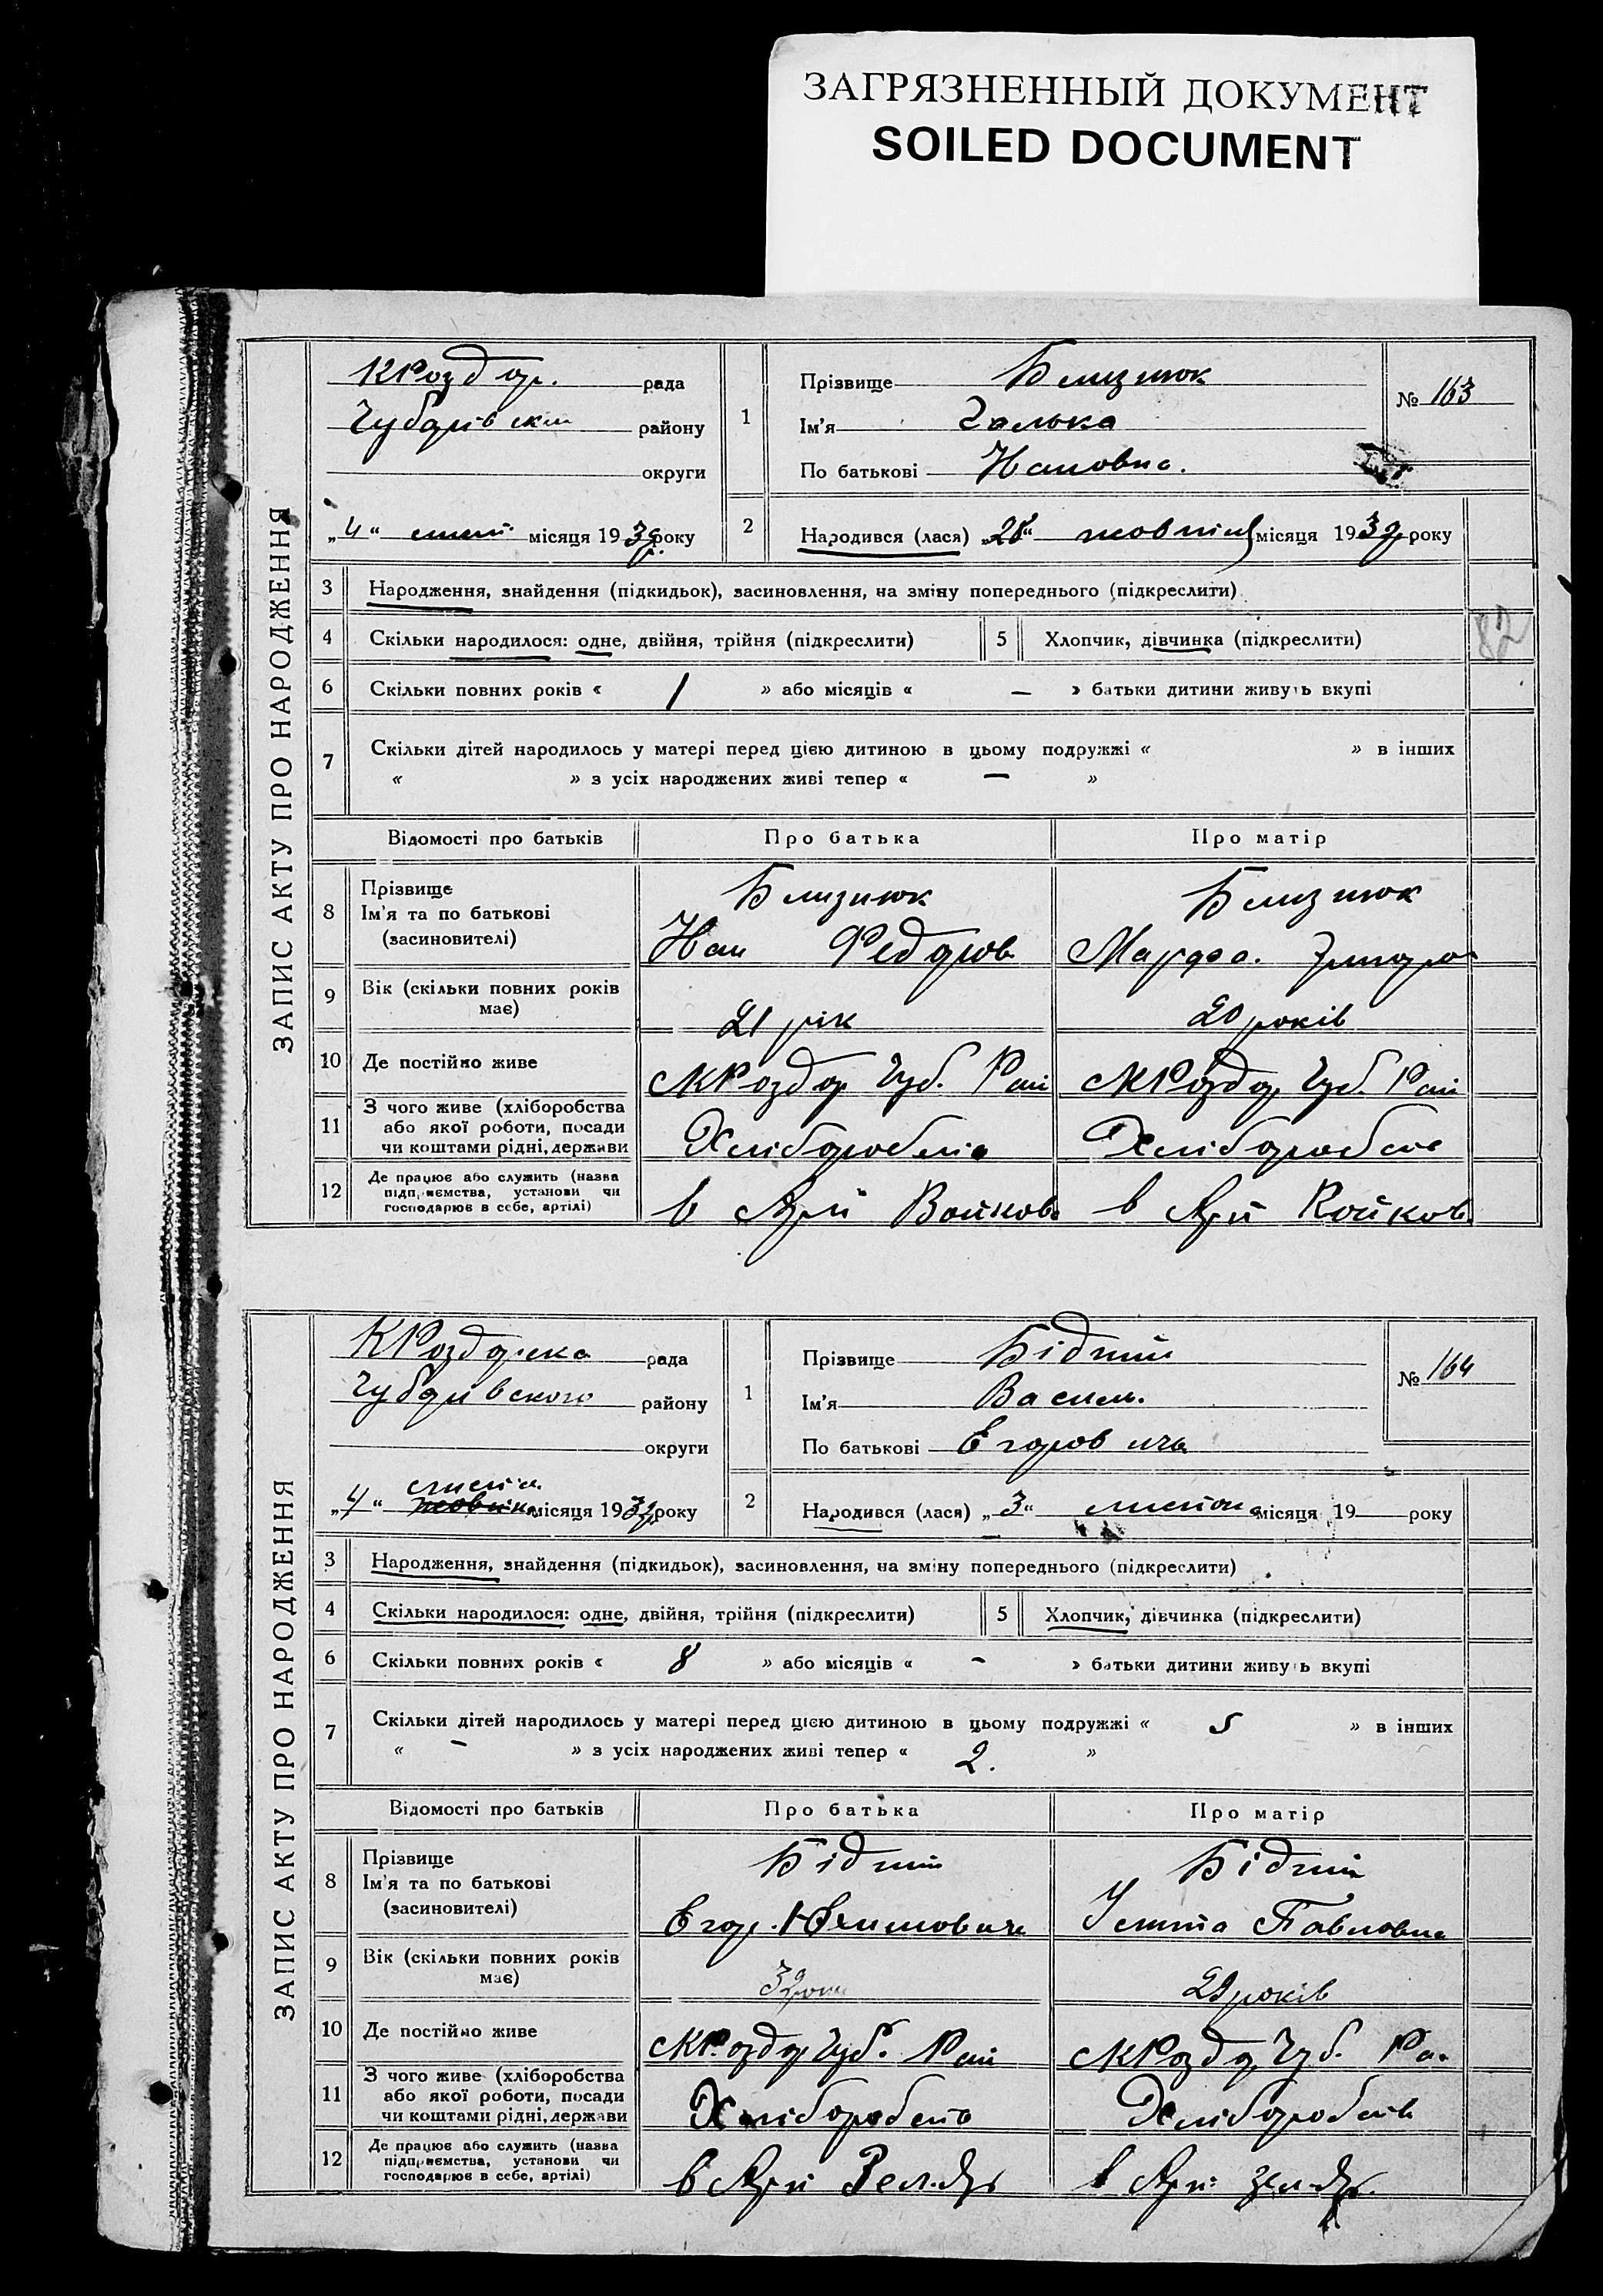 ЗАГРЯЗНЕННЫЙ ДОКУМЕНТ
SOILED DOCUMENT
ЗАПИС АКТУ ПРО НАРОДЖЕННЯ
КРоздор. рада
Чубарівськ району
округи
„4“ місяця 1932 року
1
Прізвище Близнюк
Ім'я Галька
По батькові Ивановна.
№ 163
2
Народився (лася) „28“ жовтня місяця 1932 року
3 Народження, знайдення (підкидьок), засиновлення, на зміну попереднього (підкреслити)
4 Скільки народилося: одне, двійня, трійня (підкреслити)
5 Хлопчик, дівчинка (підкреслити)
82
6 Скільки повних років « 1 » або місяців « — » батьки дитини живуть вкупі
7 Скільки дітей народилось у матері перед цією дитиною в цьому подружжі « » в інших
« » з усіх народжених живі тепер « — »
Відомості про батьків Про батька Про матір
8 Прізвище
Ім'я та по батькові
(засиновителі)
Близнюк
Иван Федоров
Близнюк
Марфа.
9 Вік (скільки повних років
має)
21 рік
20 років
10 Де постійно живе
с КРоздор Чуб. Рай
с КРоздор Чуб. Рай
11 З чого живе (хліборобства
або якої роботи, посади
чи коштами рідні, держави
Хліборобств
Хліборобств
12 Де працює або служить (назва
підприємства, установи чи
господарює в себе, артілі)
в Арт Войкова
в Арт Войков
ЗАПИС АКТУ ПРО НАРОДЖЕННЯ
КРоздорська рада
Чубарівського району
округи
листоп
„4“ місяця 1932 року
1
Прізвище Бідний
Ім'я Василь.
По батькові Егорович
№ 164
2
Народився (лася) „3“ листопа місяця 19 року
3 Народження, знайдення (підкидьок), засиновлення, на зміну попереднього (підкреслити)
4 Скільки народилося: одне, двійня, трійня (підкреслити)
5 Хлопчик, дівчинка (підкреслити)
6 Скільки повних років « 8 » або місяців « - » батьки дитини живуть вкупі
7 Скільки дітей народилось у матері перед цією дитиною в цьому подружжі « 5 » в інших
« - » з усіх народжених живі тепер « 2. »
Відомості про батьків Про батька Про матір
8 Прізвище
Ім'я та по батькові
(засиновителі)
Бідний
Егор
Бідний
Устина Павловна
9 Вік (скільки повних років
має)
32 роки
29 років
10 Де постійно живе
с КРоздор Чуб. Рай
с КРоздор Чуб. Ра.
11 З чого живе (хліборобства
або якої роботи, посади
чи коштами рідні, держави
Хліборобств
Хліборобств
12 Де працює або служить (назва
підприємства, установи чи
господарює в себе, артілі)
в Арт
в Арт